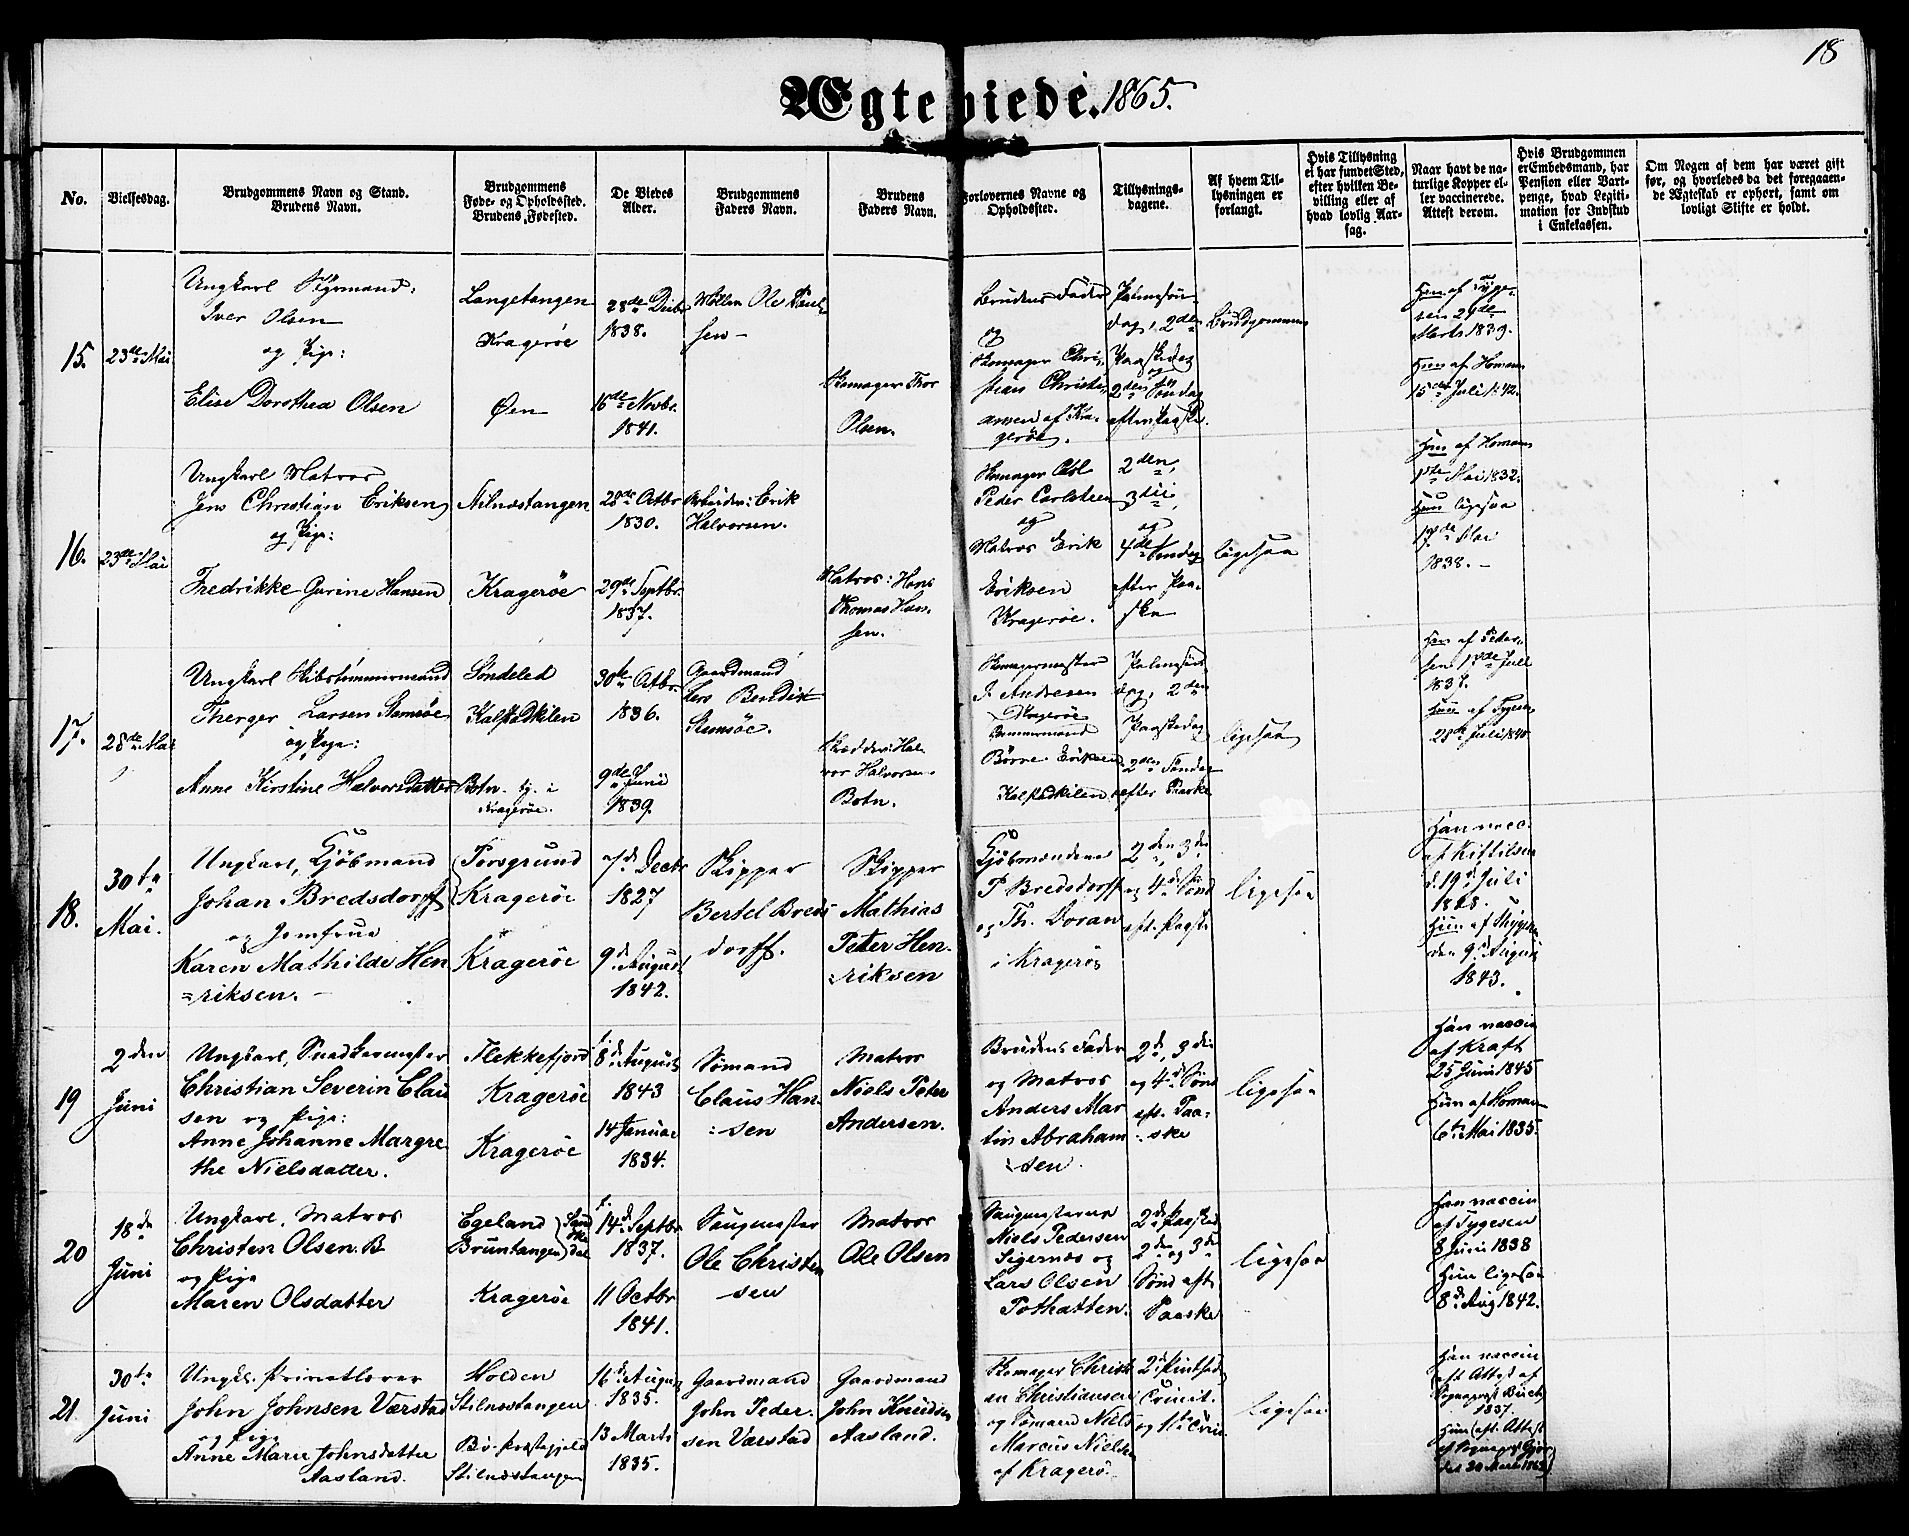 18
Ægteviede. 1865.
No.
Vielsesdag.
Brudgommens Navn og Stand.
Brudens Navn.
Brudgommens
Føde- og Opholdssted.
Brudens Fødested.
De Viedes
Alder.
Brudgommens
Faders Navn.
Brudens
Faders Navn.
Forlovernes Navne og
Opholdssted.
Tillysnings-
dagene.
Af hvem Til-
lysningen er
forlangt.
Hvis Tillysning
ei har fundet Sted,
efter hvilken Be-
villing eller af
hvad lovlig Aar-
sag.
Naar havt de na-
turlige Kopper el-
ler vaccinerede.
Attest derom.
Hvis Brudgommen
er Embedsmand, har
Pension eller Vart-
penge, hvad Legiti-
mation for Indskud
i Enkekassen.
Om Nogen af dem har været gift
før, og hvorledes da det foregaaen-
de Ægteskab er ophørt, samt om
lovligt Skifte er holdt.
15.
23de Mai
Ungkarl
Iver Olsen
og Pige:
Elise Dorothea Olsen
Langetangen
Kragerøe
Øen
28de Decbr
1838.
16de Novbr.
1841.
Ole
sen
Skomager Thor
Olsen.
Brudens Fader
og
Skomager Chri-
stian Christi-
ansen af Kra-
gerøe.
Palmesøn-
dag, 2den
Paaskedag
og
2den Søndag
efter Paaske.
Brudgommen
Han af Tyge-
sen 29de
Marts 1839.
Hun af Homan
15de Juli 1842.
16.
23de Mai
Ungkarl Matros
Jens Christian Eriksen
og Pige:
Fredrikke Gurine Hansen
Stilnæstangen
Kragerøe
28de Octbr
1830.
29de Septbr.
1837.
Arbeider: Erik
Halvorsen.
Matros: Hans
Thomas Han-
sen.
Skomager
Peder Carlsteen
og
Matros Erik
Eriksen
Kragerøe.
2den,
3die,
og
4de Søndag
efter Paa-
ske
ligesaa
Han af Homan
1ste Mai 1832.
Hun ligesaa
17de Mai
1838.
17.
28de Mai
Ungkarl Skibstømmermand
Therger Larsen Stamsøe
og Pige:
Anne Kirstine Halvorsdatter
Søndeled
Kalstadkilen
Botn. tj. i
Kragerøe.
30te Octbr.
1836.
9de Juni
1839.
Gaardmand
Lars Bendix
Stamsøe.
Skrædder: Hal-
vor Halvorsen
Botn.
Skomagermester
J. Andresen
Kragerøe
Tømmermand
Børre Eriksen
Kalstadkilen.
Palmesøn-
dag, 2den
Paaskedag
2den Søndag
efter Paaske
ligesaa
Han af Peder-
sen 17de Juli
1837.
Hun af Tygesen
28de Juli 1840
18.
30te
Mai.
Ungkarl, Kjøbmand
Johan Bredsdorff
og Jomfrue
Karen Mathilde Hen
=riksen.
Porsgrund
Kragerøe
Kragerøe
7de Decbr
1827
9de August
1842.
Skipper
Bertel Breds
dorff.
Skipper
Mathias
Peter Hen-
riksen
Kjøbmændene
P Bredsdorff
og Th. Doran
i Kragerø
2den, 3die
og 4de Sønd
eft. Paaske.
ligesaa
Han vacc.
af Kittilsen
d. 19de Juli
1828.
Hun af
den 9de August
1843.
19
2den
Juni
Ungkarl, Snedkermester
Christian Severin Clau
sen og Pige:
Anne Johanne Margre
the Nielsdatter.
Flekkefjord
Kragerøe
Kragerøe
8de August
1843
14 Januar
1834.
Sømand
Claus Han-
sen
Matros
Niels Peter
Andersen.
Brudens Fader
og Matros
Anders Mar
tin Abraham
sen.
2de, 3die
og 4de Sønd
eft. Paa-
ske
ligesaa
Han vaccin
af Kraft
25 Juni 1845
Hun af Homan
6te Mai 1835.
20
18de
Juni
Ungkarl, Matros
Christen Olsen. B
og Pige
Maren Olsdatter
Egeland
Bruntangen
Kragerøe
14de Septbr
1837.
11 Octbr
1841.
Saugmester
Ole Christen
sen
Matros
Ole Olsen
Saugmesterne
Niels Pedersen
og
Lars Olsen
Pothatten.
2de Paasked
2de og 3de
Sønd eft
Paaske
ligesaa
Han vaccin
af Tygesen
8 Juni 1838
Hun ligesaa
8de Aug 1842.
21.
30te
Juni
Ungk. Privatlærer
John Johnsen Værstad
og Pige
Anne Marie Johnsdatter
Aasland.
Holden
Stilnæstangen
Bø Præstegjeld
Stilnæstangen
16de August
1835.
13 Marts
1835.
Gaardmand
John Peder-
sen Værstad
Gaardmand
John Knudsen
Aasland.
Skomager Christi
an Christiansen
og Sømand Niels
Marcus Nielsen
af Kragerø.
2de Pintsedag
Trinit.
og 1ste
ligesaa
Han vaccin
eft Attest af
Sognepræst Buch
1837.
Hun eft. Attest